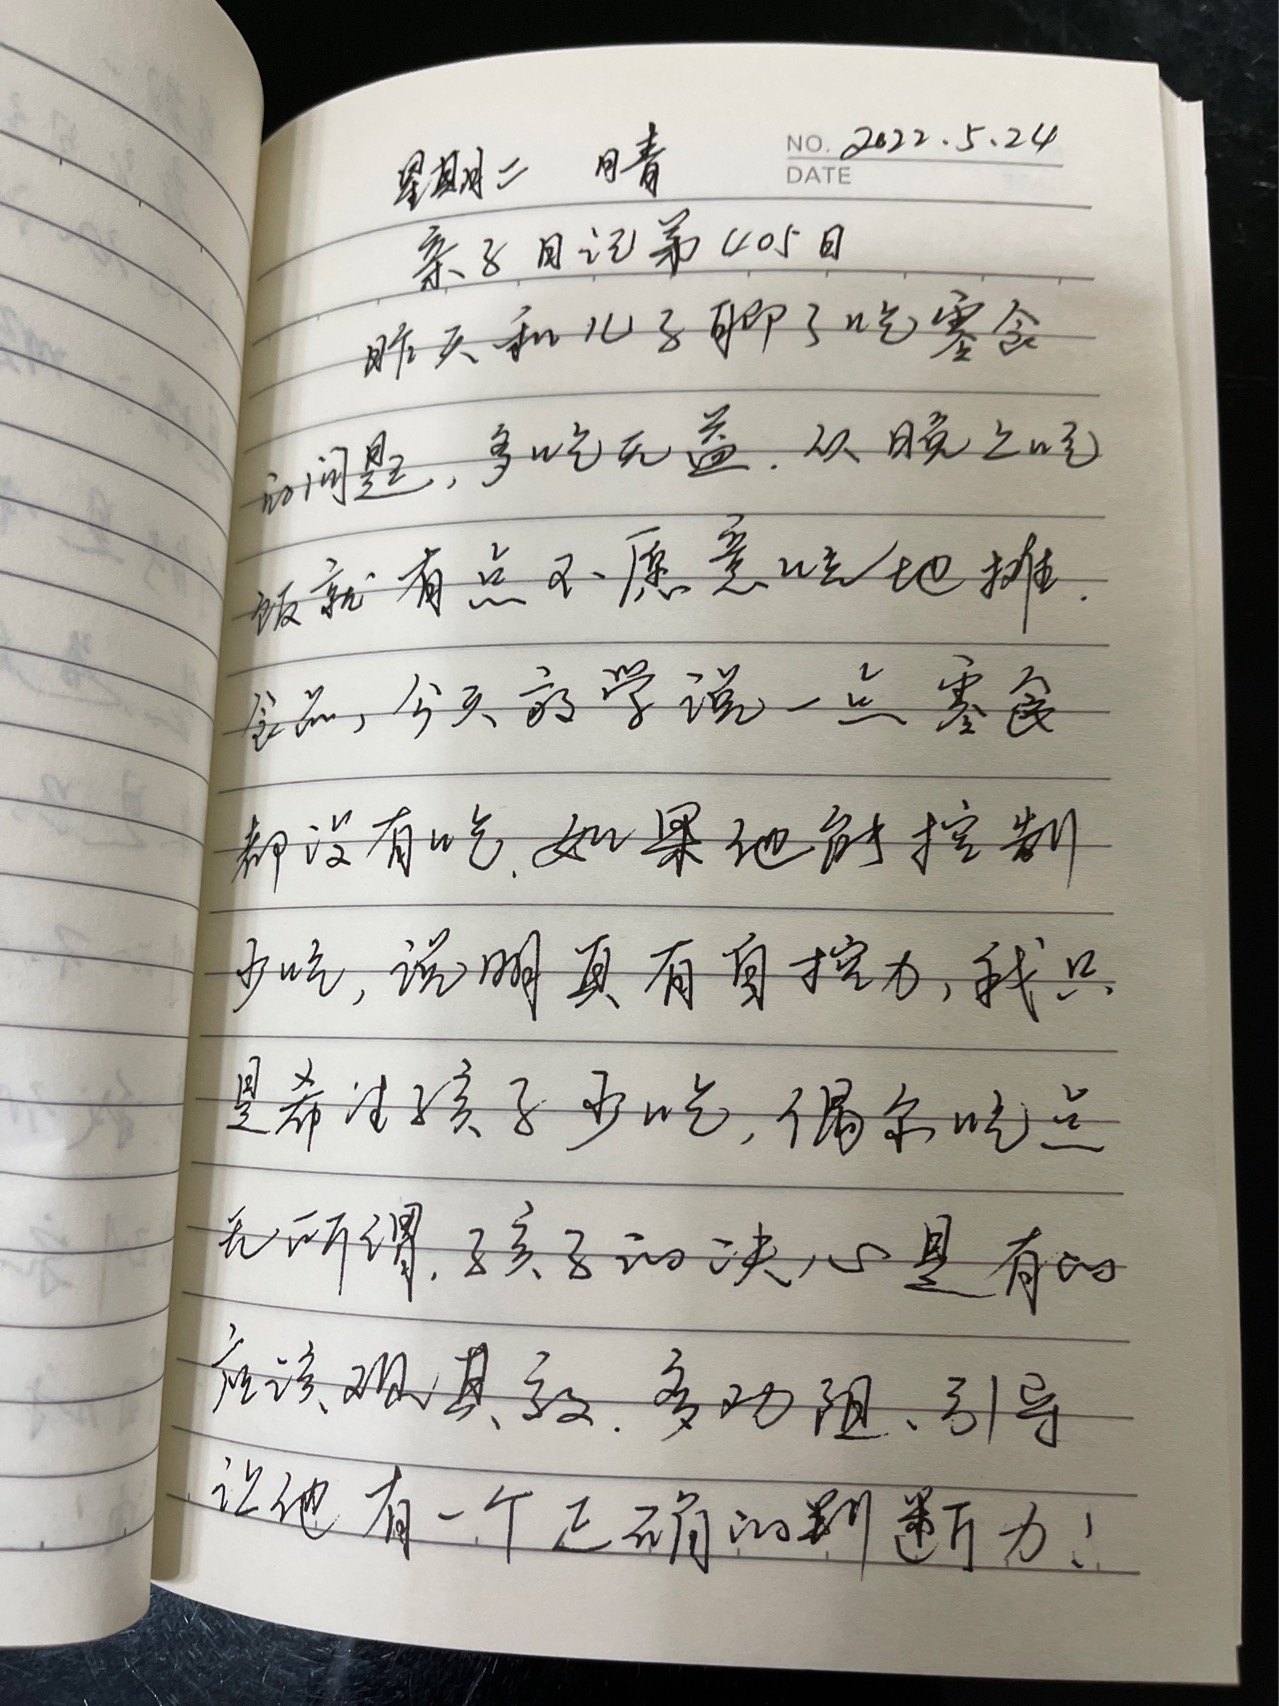 NO. 2022.5.24
DATE
星期二 晴
亲子日记第405日
昨天和儿子聊了吃零食
的问题，多吃无益．从晚上吃
饭就有点不愿意吃地摊．
食品，今天放学说一点零食
都没有吃．如果他能控制
少吃，说明真有自控力，我只
是希望孩子少吃，偶尔吃点
无所谓．孩子的决心是有的
应该观其效．多劝阻、引导
让他有一个正确的判断力！